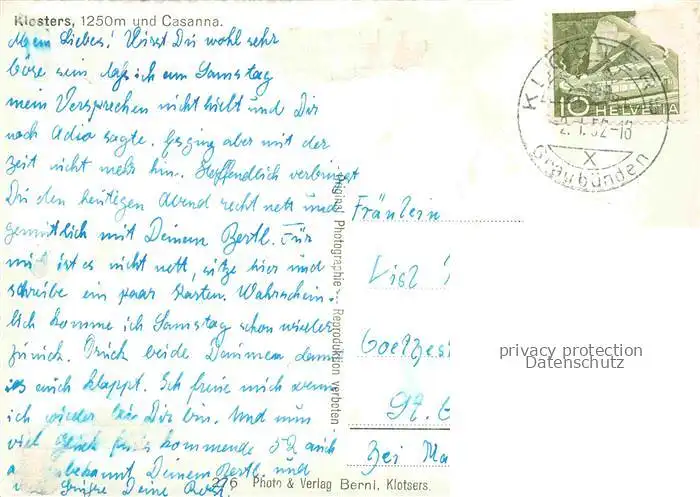 Klosters, 1250m und Casanna.
Mein Liebes! Wirst Du wohl sehr
böse sein daß ich am Samstag
mein Versprechen nicht hielt und Dir
noch Adio sagte. Es ging aber mit der
Zeit nicht mehr hin. Hoffendlich verbringst
Du den heutigen Abend recht nett und
gemütlich mit Deinem Bertl. Für
mich ist es nicht nett, sitze hier und
schreibe ein paar Karten. Wahrschein-
lich komme ich Samstag schon wieder
zurück. Drück beide Daumen, damit
es auch klappt. Ich freue mich wenn
ich wieder bei Dir bin. Und nun
viel Glück fürs kommende 52 auch
unbekannt Deinem Bertl und
Grüße Deine
276 Photo & Verlag Berni, Klotsers.
Original Photographie --- Reproduktion verboten -
10 HELVETIA
KLOSTERS
2.1.52-18
X
(Graubünden)
Fräulein
Lisl
Goethest
St.
Bei Ma
privacy protection
Datenschutz